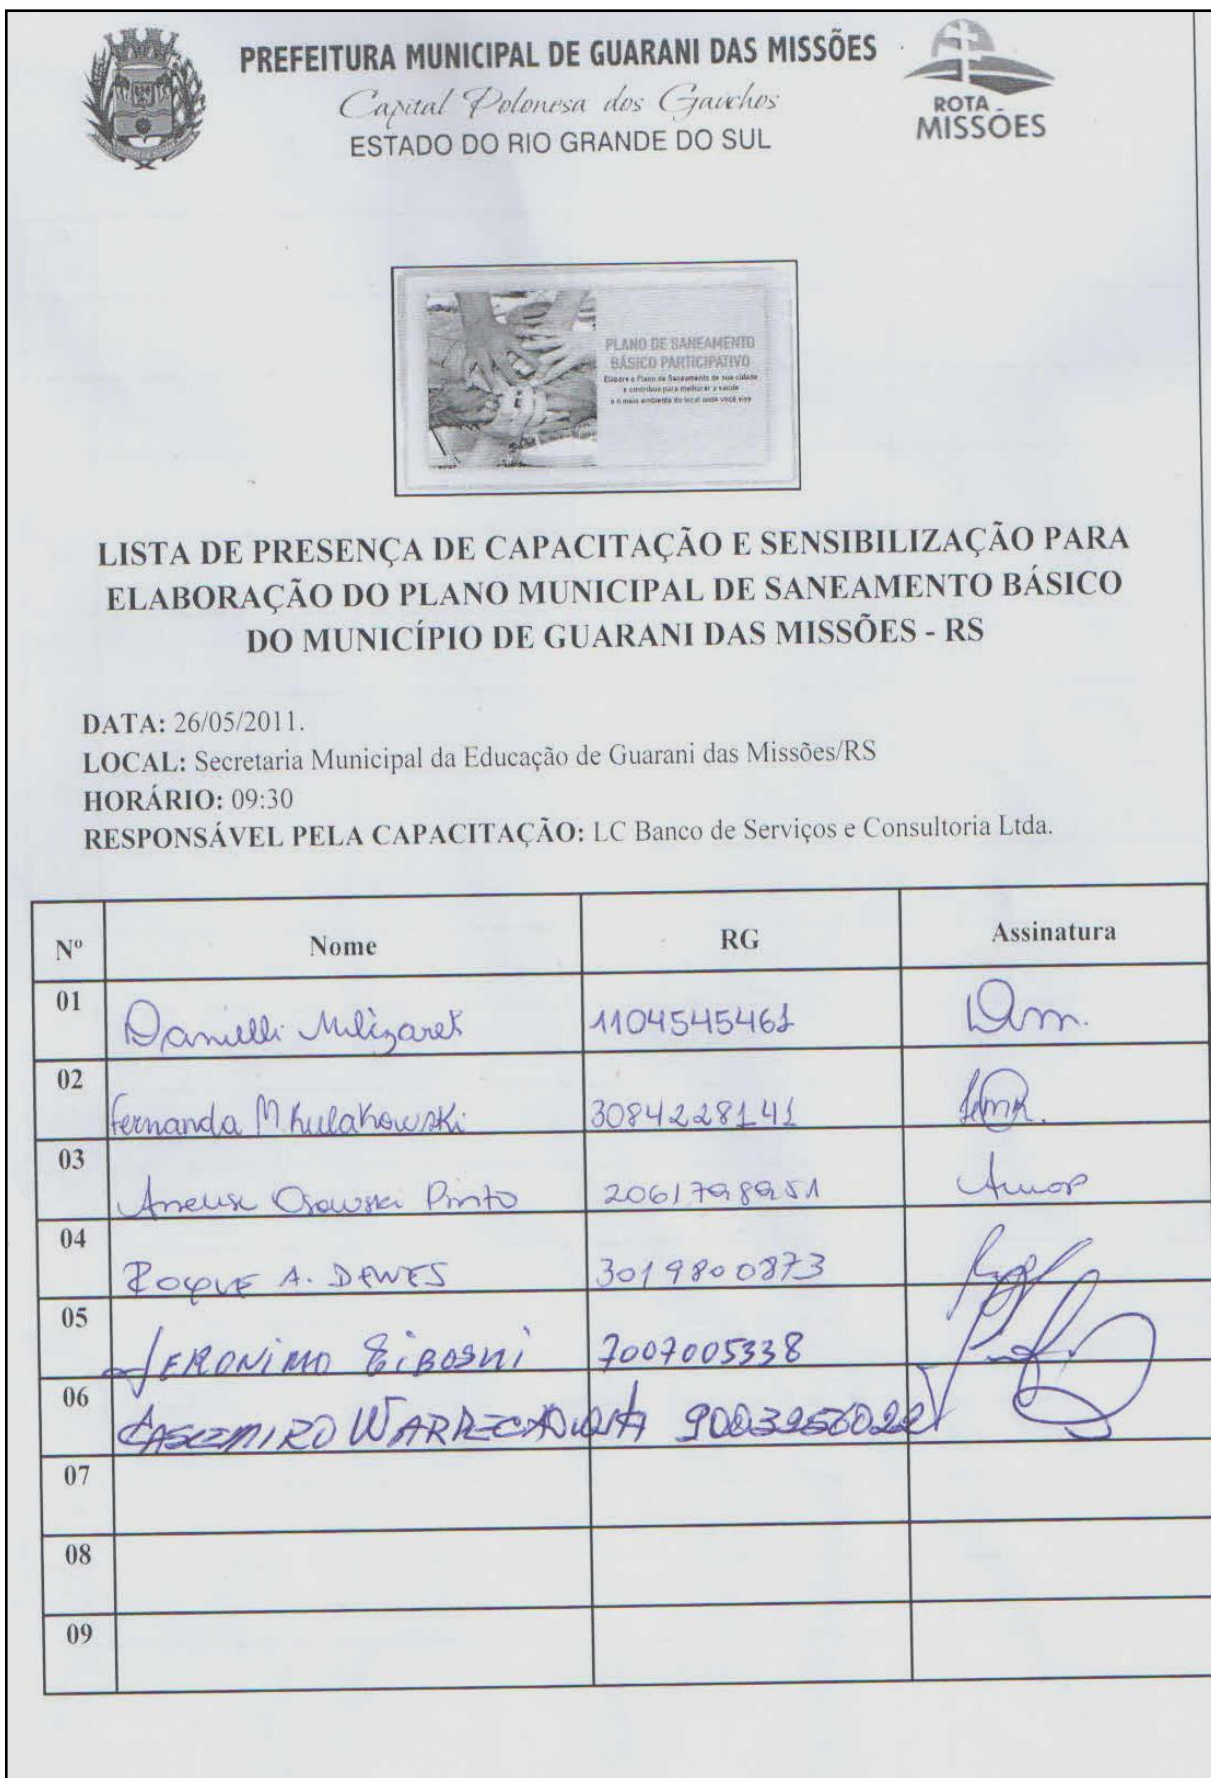 PREFEITURA MUNICIPAL DE GUARANI DAS MISSÕES
Capital Polonesa dos Gaúchos
ESTADO DO RIO GRANDE DO SUL
ROTA
MISSÕES
PLANO DE SANEAMENTO
BÁSICO PARTICIPATIVO
Elabore o Plano de Saneamento de sua cidade
e contribua para melhorar a saúde
e o meio ambiente do local onde você vive
LISTA DE PRESENÇA DE CAPACITAÇÃO E SENSIBILIZAÇÃO PARA
ELABORAÇÃO DO PLANO MUNICIPAL DE SANEAMENTO BÁSICO
DO MUNICÍPIO DE GUARANI DAS MISSÕES - RS
DATA: 26/05/2011.
LOCAL: Secretaria Municipal da Educação de Guarani das Missões/RS
HORÁRIO: 09:30
RESPONSÁVEL PELA CAPACITAÇÃO: LC Banco de Serviços e Consultoria Ltda.
Nº Nome RG Assinatura
01 Danielli 1104545461 Dm.
02 Fernanda M. Kulakowski 3084228141
03 Pinto
04 ROQUE A. DEWES 3019800873
05 JERONIMO 7007005338
06 CASEMIRO
07
08
09